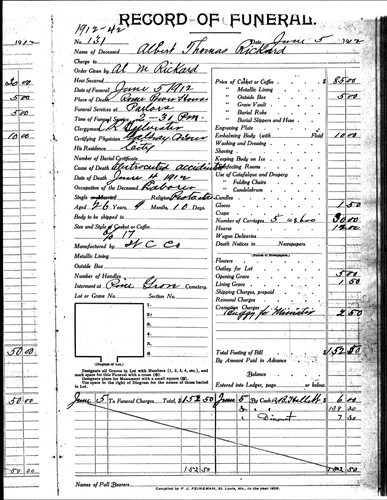 1912-42
RECORD OF FUNERAL.
No. 131 Date June 5 1912
Name of Deceased Albert Thomas Rickard
Charge to
Order Given by Al M Rickard
How Secured
Date of Funeral June 5 1912
Place of Death
Funeral Services at Parlors
Time of Funeral Service 2-31 P.M.
Clergyman
Certifying Physician
His Residence City
Number of Burial Certificate
Cause of Death electrocuted accidental
Date of Death June 4 1912
Occupation of the Deceased Laborer
Single or Married Religion
Aged 26 Years, 9 Months, 10 Days
Body to be shipped to
Size and Style of Casket or Coffin
6/3 17
Manufactured by N C Co
Metallic Lining
Outside Box
Number of Handles
Interment at Pine Grove Cemetery.
Lot or Grave No. Section No.
1
2
3
4
5
6
(Diagram of Lot.)
Designate all Graves in Lot with Numbers (1, 2, 3, 4, etc.), and mark space for this Funeral with a cross (⊗).
Designate place for Monument with a small square (□).
Use space to right of Diagram for the names of those buried in Lot.
Price of Casket or Coffin $ 85 00
" Metallic Lining
" Outside Box 5 00
" Grave Vault
" Burial Robe
" Burial Slippers and Hose
Engraving Plate
Embalming Body (with Fluid) 10 00
Washing and Dressing
Shaving
Keeping Body on Ice
Disinfecting Rooms
Use of Catafalque and Drapery
" Folding Chairs
" Candelabrum
Candles
Gloves 1 50
Crape
Number of Carriages 5 @ 6 00 30 00
Hearse 12 00
Wagon Deliveries
Death Notices in Newspapers.
(Names of Newspapers.)
Flowers
Outlay for Lot
Opening Grave 5 00
Lining Grave 1 50
Shipping Charges, prepaid
Removal Charges
Cremation Charges
Buggy for Minister 2 50
Total Footing of Bill $ 152 50
By Amount Paid in Advance
Balance
Entered into Ledger, page
June 5 To Funeral Charges, Total, $ 152 50
June 5 By Cash $ 6 00
139 20
" Discount 7 30
152 50
152 50
Names of Pall Bearers
Compiled by F. C. FEINEMAN, St. Louis, Mo., in the year 1905.